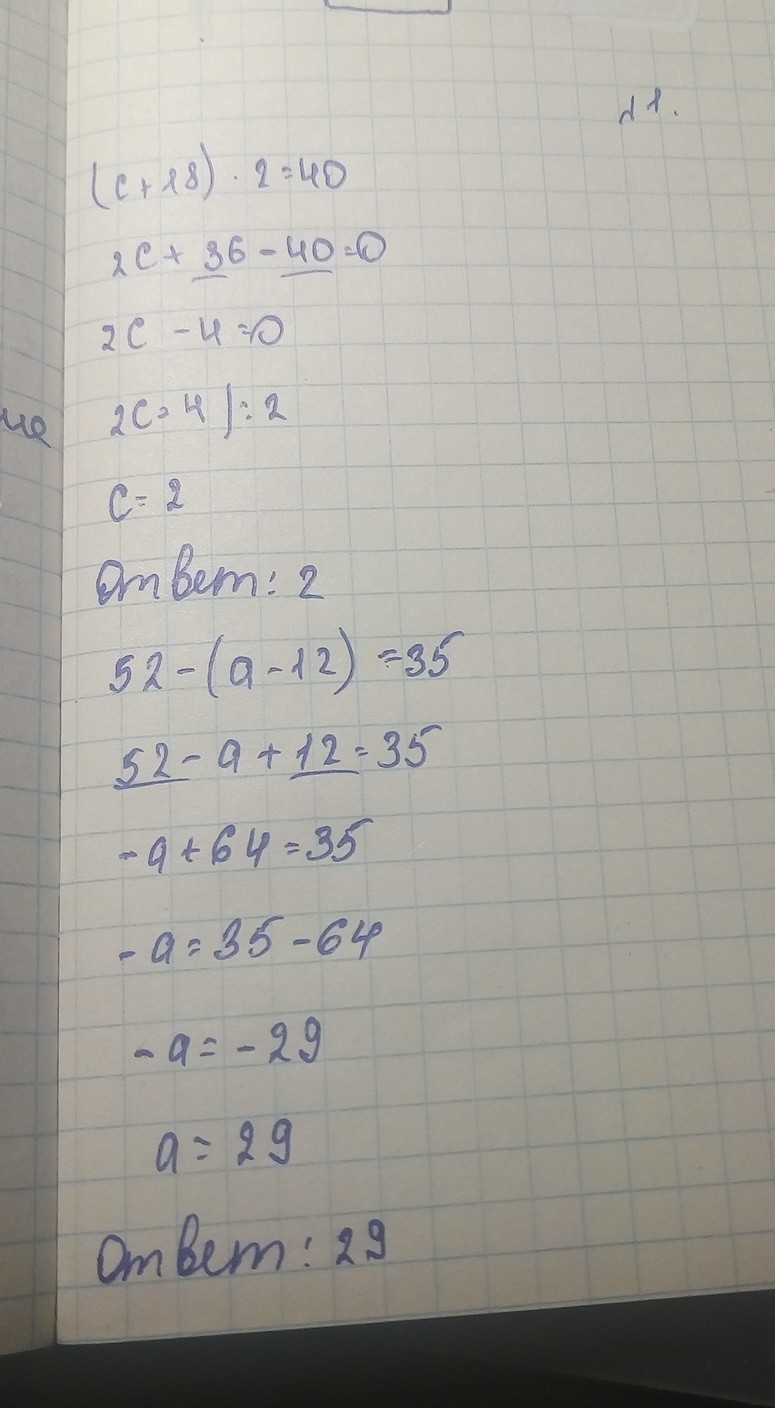 1.
(c+18) · 2=40
2c+36-40=0
2c -4=0
2c=4 |:2
c= 2
Ответ: 2
52-(a-12) =35
52-a+12=35
-a+64=35
-a=35-64
-a=-29
a= 29
Ответ: 29